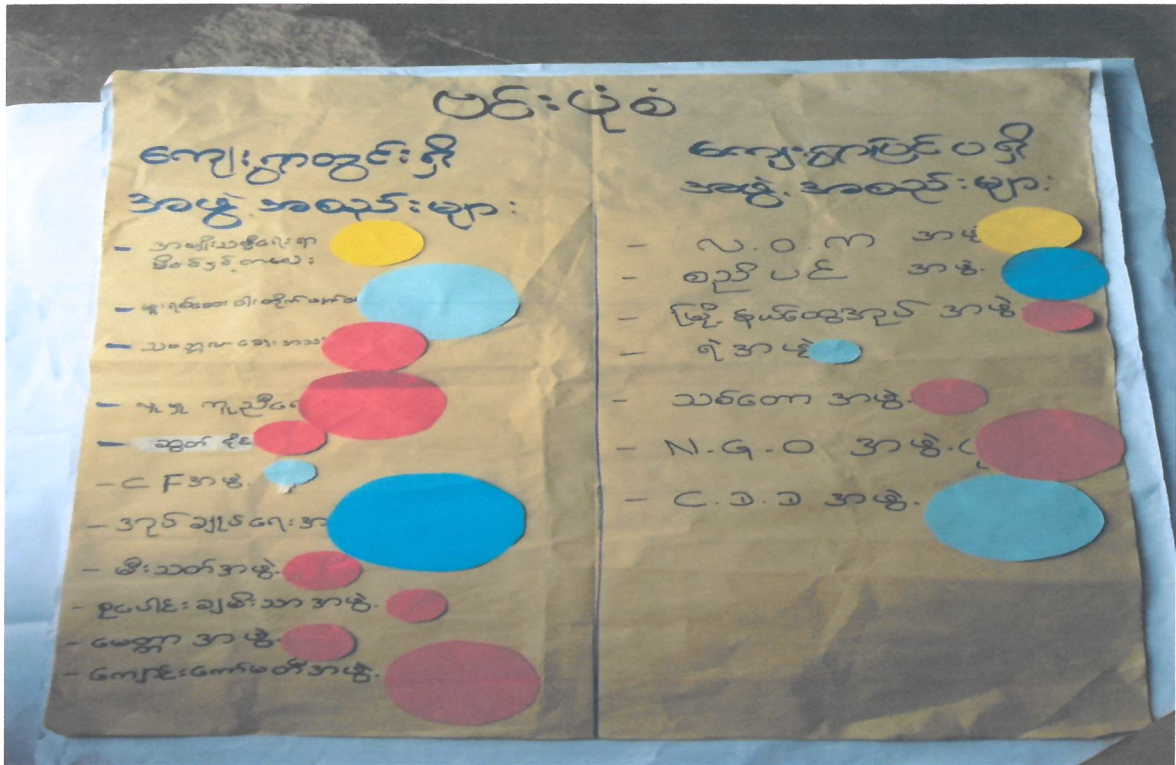 ဗင်းပုံစံ
ကျေးရွာတွင်းရှိ
အဖွဲ့အစည်းများ
- အမျိုးသမီးရေးရာ
မိခင်နှင့်ကလေး
-
-
-
- ဆွတ်
- C F အဖွဲ့
- အုပ်ချုပ်ရေးအ
- မီးသတ်အဖွဲ့
- စုပေါင်းချမ်းသာအဖွဲ့
- မေတ္တာအဖွဲ့
- ကျောင်းကော်မတီအဖွဲ့
ကျေးရွာပြင်ပရှိ
အဖွဲ့အစည်းများ
- လ.ဝ.က အဖွဲ့
- စည်ပင် အဖွဲ့
- မြို့နယ်ထွေအုပ် အဖွဲ့
- ရဲအဖွဲ့
- သစ်တောအဖွဲ့
- N.G.O အဖွဲ့
- C.D.D အဖွဲ့